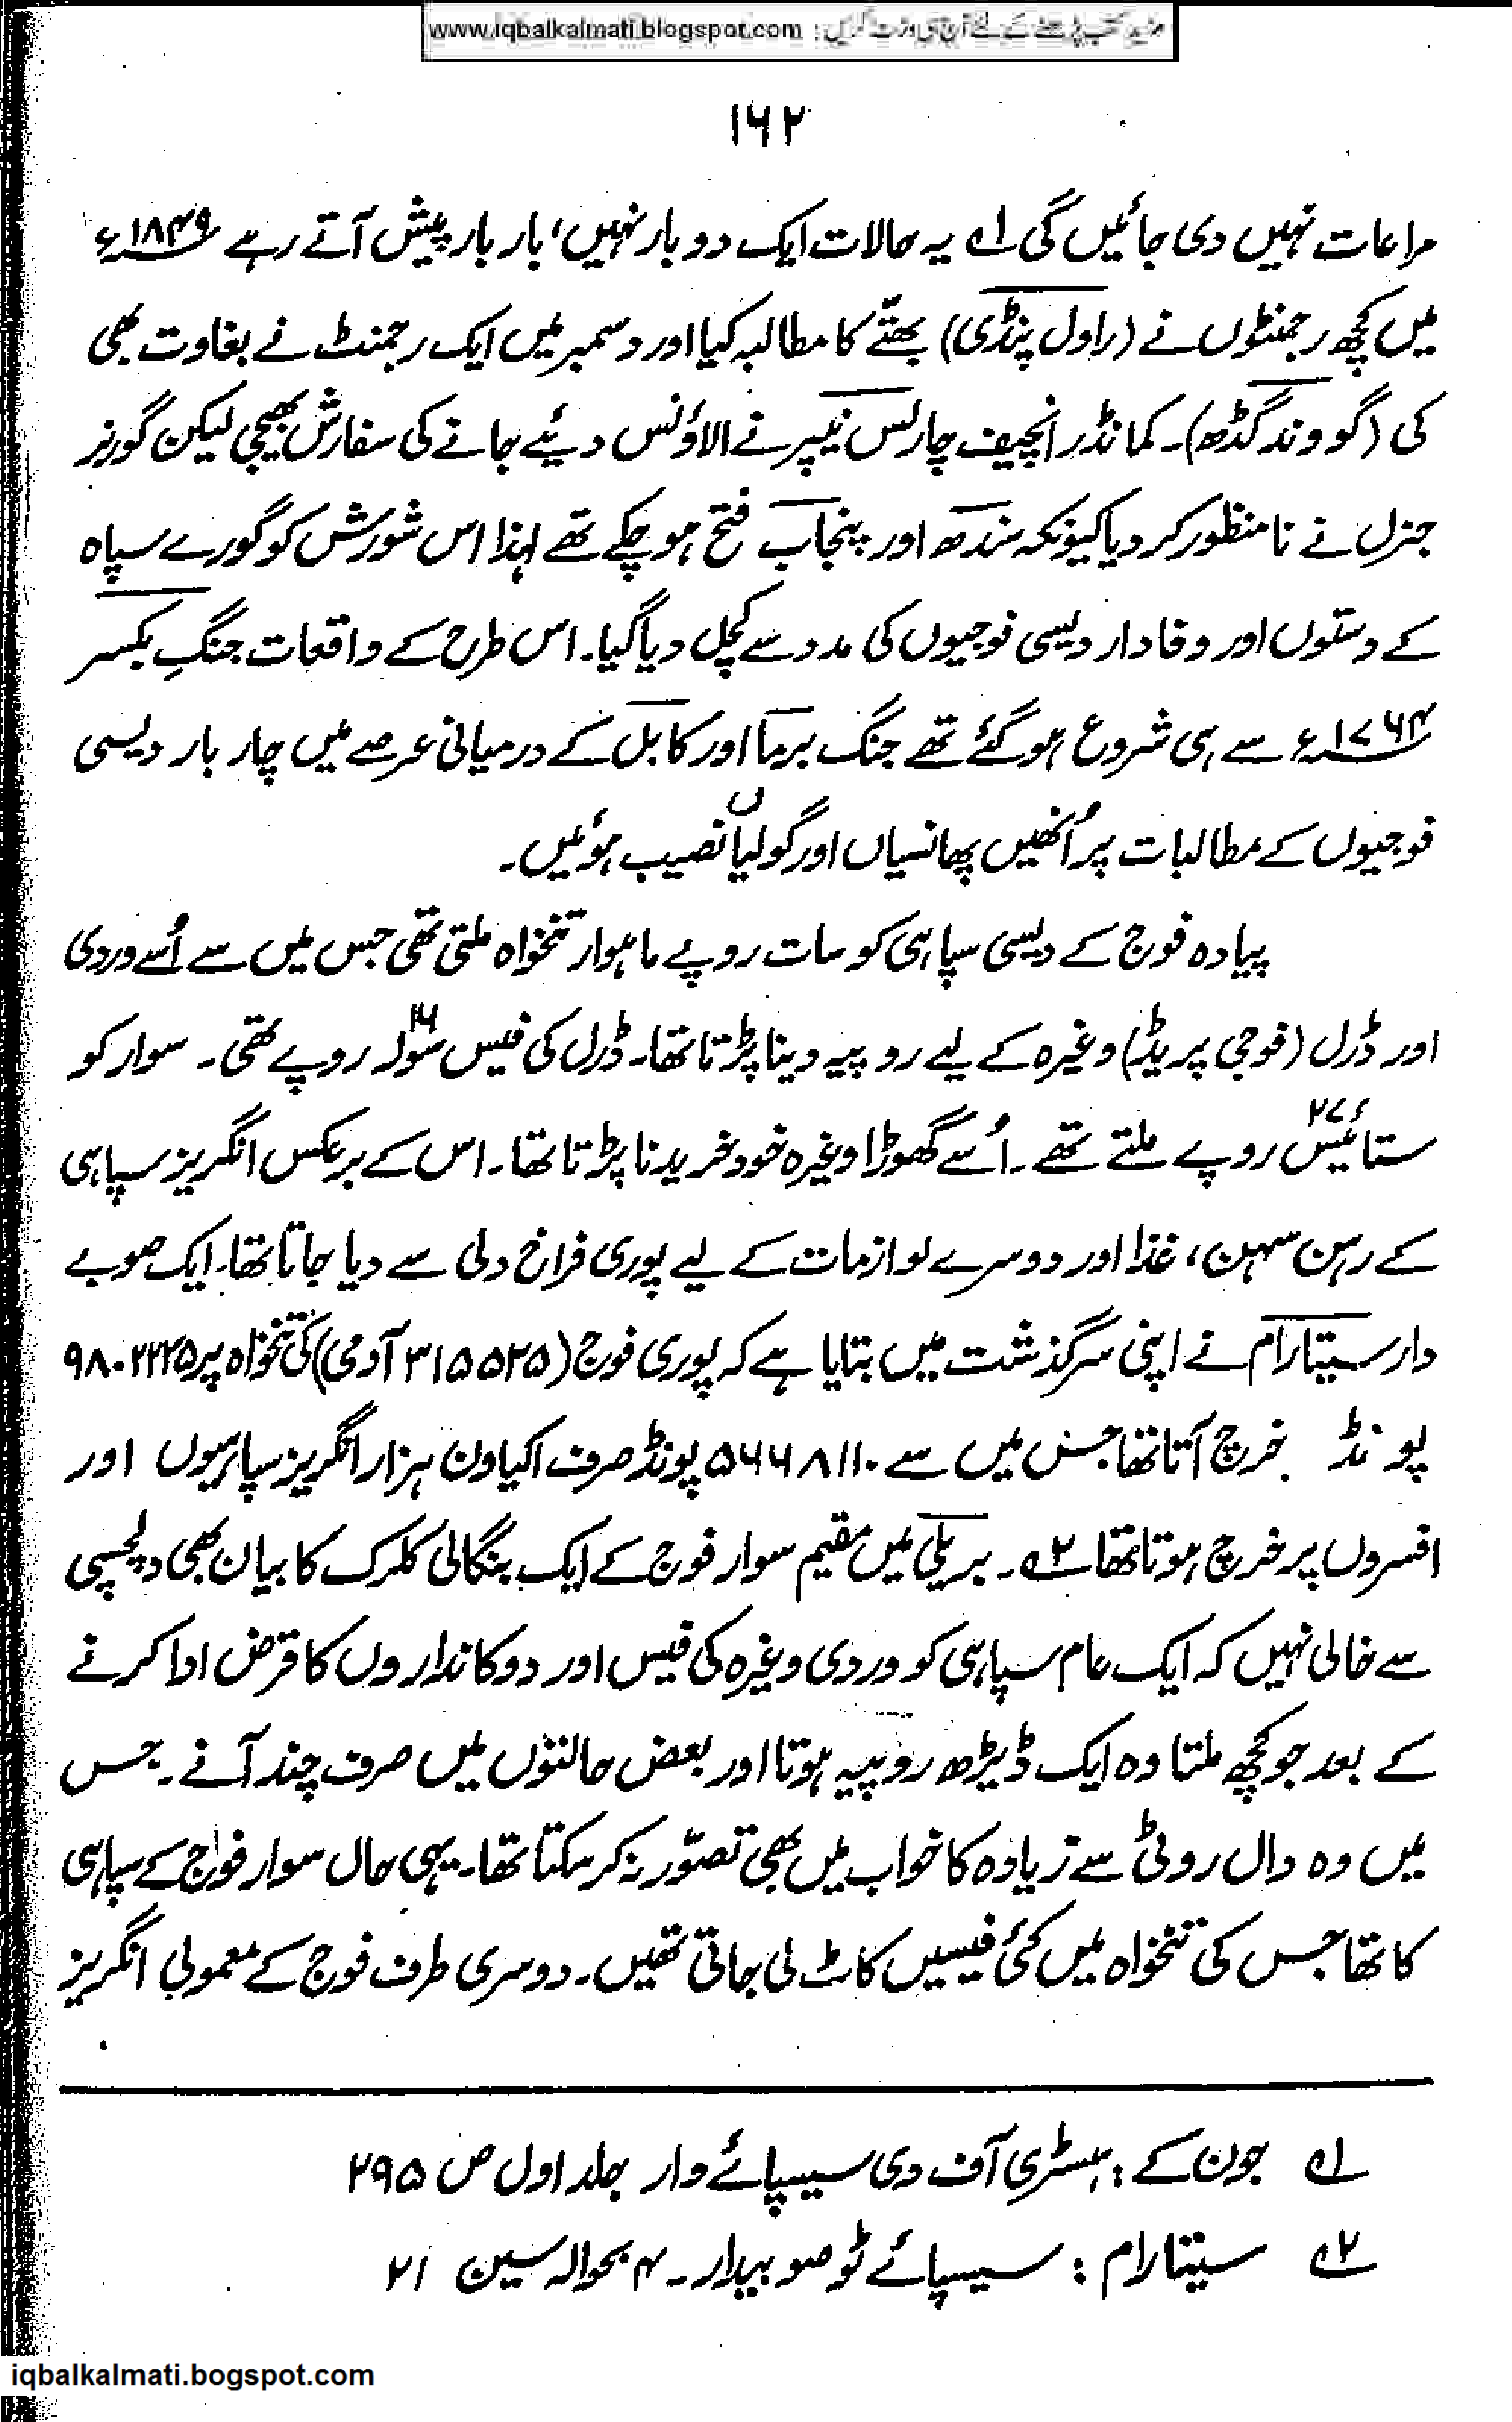 مزید کتب پڑھنے کے لئے آج ہی وزٹ کریں : www.iqbalkalmati.blogspot.com
۱۶۲
مراعات نہیں دی جائیں گی ۱ے یہ حالات ایک دو بار نہیں، بار بار پیش آتے رہے ۱۸۴۹ء
میں کچھ رجمنٹوں نے (راول پنڈی) بھتّے کا مطالبہ کیا اور دسمبر میں ایک رجمنٹ نے بغاوت بھی
کی (گووند گڈھ)۔ کمانڈر انچیف چارلس نیپیر نے الاؤنس دیئے جانے کی سفارش بھیجی لیکن گورنر
جنرل نے نامنظور کر دیا کیونکہ سندھ اور پنجاب فتح ہو چکے تھے لہٰذا اس شورش کو گورے سپاہ
کے دستوں اور وفادار دیسی فوجیوں کی مدد سے کچل دیا گیا۔ اس طرح کے واقعات جنگِ بکسر
۱۷۶۴ء سے ہی شروع ہو گئے تھے جنگ برما اور کابل کے درمیانی عرصے میں چار بار دیسی
فوجیوں کے مطالبات پر اُنھیں پھانسیاں اور گولیاں نصیب ہوئیں۔
پیادہ فوج کے دیسی سپاہی کو سات روپے ماہوار تنخواہ ملتی تھی جس میں سے اُسے وردی
اور ڈرل (فوجی پریڈ) وغیرہ کے لیے روپیہ دینا پڑتا تھا۔ ڈرل کی فیس سولہ ۱۶ روپے تھی۔ سوار کو
ستائیس ۲۷ روپے ملتے تھے۔ اُسے گھوڑا وغیرہ خود خریدنا پڑتا تھا۔ اس کے برعکس انگریز سپاہی
کے رہن سہن، غذا اور دوسرے لوازمات کے لیے پوری فراخ دلی سے دیا جاتا تھا۔ ایک صوبے
دار سیتارام نے اپنی سرگذشت میں بتایا ہے کہ پوری فوج (۳۱۵۵۲۵ آدمی) کی تنخواہ پر ۹۸۰۲۲۲۵
پونڈ خرچ آتا تھا جس میں سے ۵۶۶۸۱۱۰ پونڈ صرف اکیاون ہزار انگریز سپاہیوں اور
افسروں پر خرچ ہوتا تھا ۲ے۔ بریلی میں مقیم سوار فوج کے ایک بنگالی کلرک کا بیان بھی دلچسپی
سے خالی نہیں کہ ایک عام سپاہی کو وردی وغیرہ کی فیس اور دوکانداروں کا قرض ادا کرنے
کے بعد جو کچھ ملتا وہ ایک ڈیڑھ روپیہ ہوتا اور بعض حالتوں میں صرف چند آنے۔ جس
میں وہ دال روٹی سے زیادہ کا خواب میں بھی تصوّر نہ کر سکتا تھا۔ یہی حال سوار فواج کے سپاہی
کا تھا جس کی تنخواہ میں کئی فیسیں کاٹ لی جاتی تھیں۔ دوسری طرف فوج کے معمولی انگریز
۱ے جون کے : ہسٹری آف دی سیپائے وار جلد اول ص ۲۹۵
۲ے سیتارام : سیپائے ٹو صوبیدار۔ ۴ بحوالہ سین ۲۱
iqbalkalmati.bogspot.com